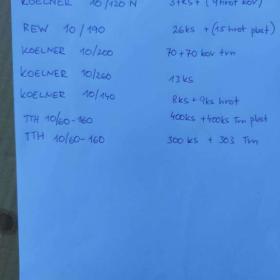 KOELNER 10/120 N 37ks + (4 hrot kov)
REW 10/190 26ks + (15 hrot plast)
KOELNER 10/200 70+70 kov trn
KOELNER 10/260 13ks
KOELNER 10/140 8ks + 9ks hrot
TTH 10/60-160 400ks +400ks Trn plast
TTH 10/60-160 300ks + 303 Trn